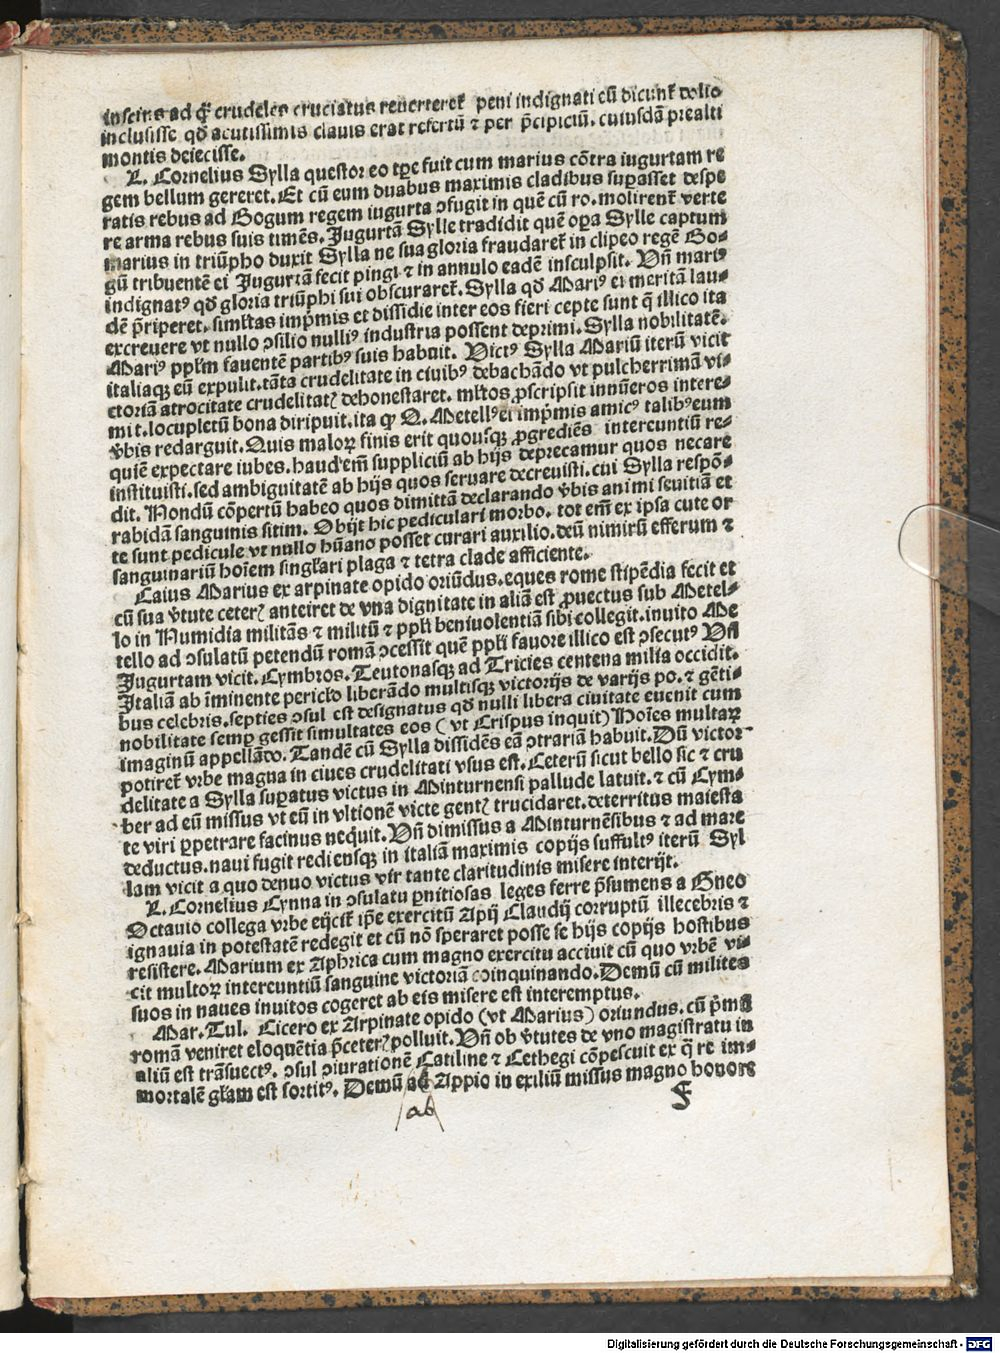 inscius ad q̄ crudeles cruciatus reuerteret̄ peni indignati cū dicunt̄ dolio
inclusisse qd̄ acutissimis clauis erat refertū ⁊ per p̄cipiciū. cuiusdā prealti
montis deiecisse.
L. Cornelius Sylla questor eo tp̄e fuit cum marius cōtra iugurtam re
gem bellum gereret. Et cū eum duabus maximis cladibus sup̄asset despe
ratis rebus ad Bogum regem iugurta ↄfugit in quē cū ro. molirent̄ verte
re arma rebus suis timēs. Jugurtā Sylle tradidit quē oꝑa Sylle captum
marius in triūpho duxit Sylla ne sua gloria fraudaret̄ in clipeo regē Bo⸗
gū tribuentē ei Jugurtā fecit pingi ⁊ in annulo eadē insculpsit. Vn̄ mariꝰ
indignatꝰ qd̄ gloria triūphi sui obscuraret̄. Sylla qd̄ Mariꝰ ei meritā lau⸗
dē p̄riperet. simłtas imp̄mis et dissidie inter eos fieri cepte sunt q̄ illico ita
excreuere vt nullo ↄsilio nulliꝰ industria possent deprimi. Sylla nobilitatē.
Mariꝰ ppłm fauentē partibꝰ suis habuit. Victꝰ Sylla Mariū iterū vicit
italiaqꝫ eū expulit. tāta crudelitate in ciuibꝰ debachādo vt pulcherrimā vi⸗
ctoriā atrocitate crudelitatꝭ dehonestaret. młtos ꝓscripsit innūeros intere⸗
mit. locupletū bona diripuit. ita ꝙ Q. Metellꝰ ei imp̄mis amicꝰ talibꝰ eum
v̄bis redarguit. Quis maloꝝ finis erit quousqꝫ ꝓgrediēs intercuntiū re⸗
quiē expectare iubes. haud em̄ suppliciū ab hijs deprecamur quos necare
instituisti. sed ambiguitatē ab hijs quos seruare decreuisti. cui Sylla respō⸗
dit. Nondū cōpertū habeo quos dimittā declarando v̄bis animi seuitiā et
rabidā sanguinis sitim. Obijt hic pediculari morbo. tot em̄ ex ipsa cute or
te sunt pedicule vt nullo hūano posset curari auxilio. deū nimirū efferum ⁊
sanguinariū hoīem singłari plaga ⁊ tetra clade afficiente.
Caius Marius ex arpinate opido oriūdus. eques rome stipēdia fecit et
cū sua v̄tute ceterꝭ anteiret de vna dignitate in aliā est ꝓuectus sub Metel⸗
lo in Numidia militās ⁊ militū ⁊ ppłi beniuolentiā sibi collegit. inuito Me
tello ad ↄsulatū petendū romā ↄcessit quē ppłi fauore illico est ↄsecutꝰ Vn̄
Jugurtam vicit. Cymbros. Teutonasqꝫ ad Tricies centena milia occidit.
Italiā ab īminente pericło liberādo multisqꝫ victorijs de varijs po. ⁊ gēti⸗
bus celebris. septies ↄsul est designatus qd̄ nulli libera ciuitate euenit cum
nobilitate semꝑ gessit simultates eos (vt Crispus inquit) Hoīes multaꝝ
imaginū appellādo. Tandē cū Sylla dissidēs eā ↄtrariā habuit. Dū victor
potiret̄ vrbe magna in ciues crudelitati vsus est. Ceterū sicut bello sic ⁊ cru
delitate a Sylla suꝑatus victus in Minturnensi pallude latuit. ⁊ cū Cym⸗
ber ad eū missus vt eū in vltionē victe gentꝭ trucidaret. deterritus maiesta
te viri ꝑpetrare facinus nequit. Vn̄ dimissus a Minturnēsibus ⁊ ad mare
deductus. naui fugit rediensqꝫ in italiā maximis copijs suffultꝰ iterū Syl
lam vicit a quo denuo victus vir tante claritudinis misere interijt.
L. Cornelius Cynna in ↄsulatu ꝑnitiosas leges ferre p̄sumens a Gneo
Octauio collega vrbe eijcit̄ ip̄e exercitū Apij Claudij corruptū illecebris ⁊
ignauia in potestatē redegit et cū nō speraret posse se hijs copijs hostibus
resistere. Marium ex Aphrica cum magno exercitu acciuit cū quo vrbē vi⸗
cit multoꝝ intercuntiū sanguine victoriā coinquinando. Demū cū milites
suos in naues inuitos cogeret ab eis misere est interemptus.
Mar. Tul. Cicero ex Arpinate opido (vt Marius) oriundus. cū p̄mū
romā veniret eloquētia p̄ceterꝭ polluit. Vn̄ ob v̄tutes de vno magistratu in
aliū est trāsuectꝰ. ↄsul ↄiurationē Catiline ⁊ Cethegi cōpescuit ex q̄ re im⸗
mortalē głam est sortitꝰ. Demū ab Appio in exiliū missus magno honore
ab
f
Digitalisierung gefördert durch die Deutsche Forschungsgemeinschaft - DFG